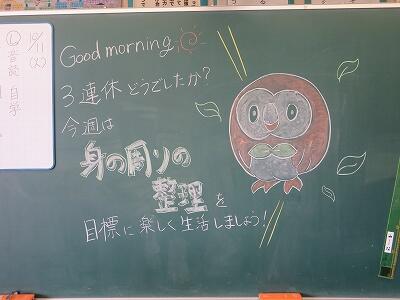 Good morning
3連休どうでしたか?
今週は
身の周りの
整理を
目標に楽しく生活しましょう!
10/11
(火)
Ⓛ音読 自学